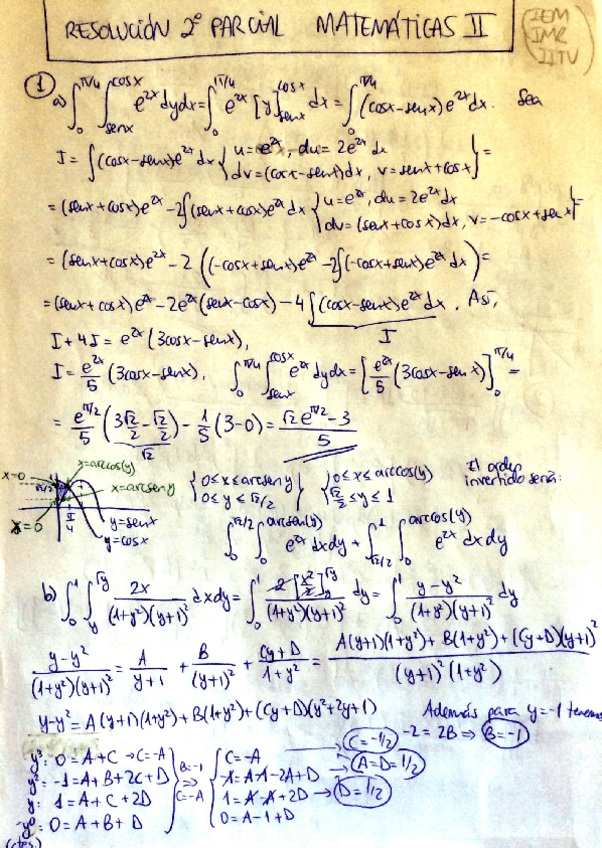 RESOLUCIÓN 2º PARCIAL MATEMÁTICAS II
IEM
IMR
IITV
① a) ∫₀^{π/4} ∫_{senx}^{cosx} e^{2x} dy dx = ∫₀^{π/4} e^{2x} [y]_{senx}^{cosx} dx = ∫₀^{π/4} (cosx-senx) e^{2x} dx. Sea
I = ∫(cosx-senx)e^{2x} dx { u = e^{2x}, du = 2e^{2x} dx
dv = (cosx-senx)dx, v = senx+cosx } =
= (senx+cosx)e^{2x} - 2∫(senx+cosx)e^{2x} dx { u = e^{2x}, du = 2e^{2x} dx
dv = (senx+cosx)dx, v = -cosx+senx } =
= (senx+cosx)e^{2x} - 2((-cosx+senx)e^{2x} - 2∫(-cosx+senx)e^{2x} dx) =
= (senx+cosx)e^{2x} - 2e^{2x}(senx-cosx) - 4∫(cosx-senx)e^{2x} dx. Así,
I
I + 4I = e^{2x}(3cosx-senx),
I = e^{2x}/5 (3cosx-senx). ∫₀^{π/4} ∫_{senx}^{cosx} e^{2x} dy dx = [e^{2x}/5 (3cosx-senx)]₀^{π/4} =
= e^{π/2}/5 (3√2/2 - √2/2) - 1/5 (3-0) = (√2 e^{π/2} - 3)/5
√2
x=arccos(y)
x=0
√2/2
x=arcsen y
x=0
π/4
y=senx
y=cosx
{ 0≤x≤arcsen y
0≤y≤√2/2
{ 0≤x≤arccos(y)
√2/2≤y≤1
El orden
invertido sería:
∫₀^{√2/2} ∫₀^{arcsen(y)} e^{2x} dx dy + ∫_{√2/2}^1 ∫₀^{arccos(y)} e^{2x} dx dy
b) ∫₀^1 ∫_y^{√y} 2x/((1+y²)(y+1)²) dx dy = ∫₀^1 2[x²/2]_y^{√y}/((1+y²)(y+1)²) dy = ∫₀^1 (y-y²)/((1+y²)(y+1)²) dy
(y-y²)/((1+y²)(y+1)²) = A/(y+1) + B/(y+1)² + (Cy+D)/(1+y²) = (A(y+1)(1+y²) + B(1+y²) + (Cy+D)(y+1)²)/((y+1)²(1+y²))
y-y² = A(y+1)(1+y²) + B(1+y²) + (Cy+D)(y²+2y+1)
Además para y=-1 tenemos
-2 = 2B ⇒ B=-1
y³: 0 = A+C → C=-A
y²: -1 = A+B+2C+D
y: 1 = A+C+2D
y⁰: 0 = A+B+D
(cte)
B=-1
⇒
C=-A
C=-A
-1=A-1-2A+D
1=A-A+2D
0=A-1+D
C=-1/2
A=D=1/2
D=1/2